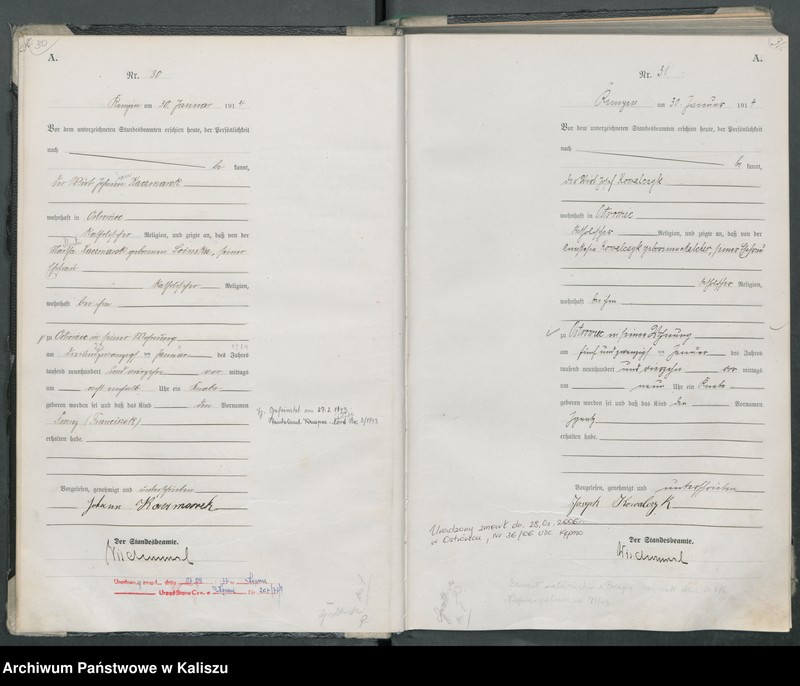 30
A.
Nr. 30
Kempen am 30. Januar 1914
Vor dem unterzeichneten Standesbeamten erschien heute, der Persönlichkeit
nach
be kannt,
der Wirt Johann Kaczmarek
wohnhaft in Ostrowiec
katholischer Religion, und zeigte an, daß von der
Kaczmarek geborenen seiner
Ehefrau
katholischer Religion,
wohnhaft bei ihm
zu Ostrowiec in seiner Wohnung
am dreiundzwanzigsten Januar des Jahres
tausend neunhundert und vierzehn vor mittags
am Uhr ein Knabe
geboren worden sei und daß das Kind den Vornamen
(Franciszek)
erhalten habe.
Vorgelesen, genehmigt und unterschrieben
Johann Kaczmarek
Der Standesbeamte.
Geheiratet am 27.2.1943
Standesamt Kempen - Nord Nr. 3/1943
31
A.
Nr. 31
Kempen am 30. Januar 1914
Vor dem unterzeichneten Standesbeamten erschien heute, der Persönlichkeit
nach
be kannt,
der Wirt Josef Kowalczyk
wohnhaft in Ostrowiec
katholischer Religion, und zeigte an, daß von der
Kowalczyk geborenen seiner Ehefrau
katholischer Religion,
wohnhaft bei ihm
zu Ostrowiec in seiner Wohnung
am fünfundzwanzigsten Januar des Jahres
tausend neunhundert und vierzehn vor mittags
am neun Uhr ein Knabe
geboren worden sei und daß das Kind den Vornamen
Ignatz
erhalten habe.
Vorgelesen, genehmigt und unterschrieben
Joseph Kowalczyk
Der Standesbeamte.
Urodzony zmarł dn. 28.01.2006r.
w Ostrówcu, Nr 36/06 USC Kępno
Archiwum Państwowe w Kaliszu